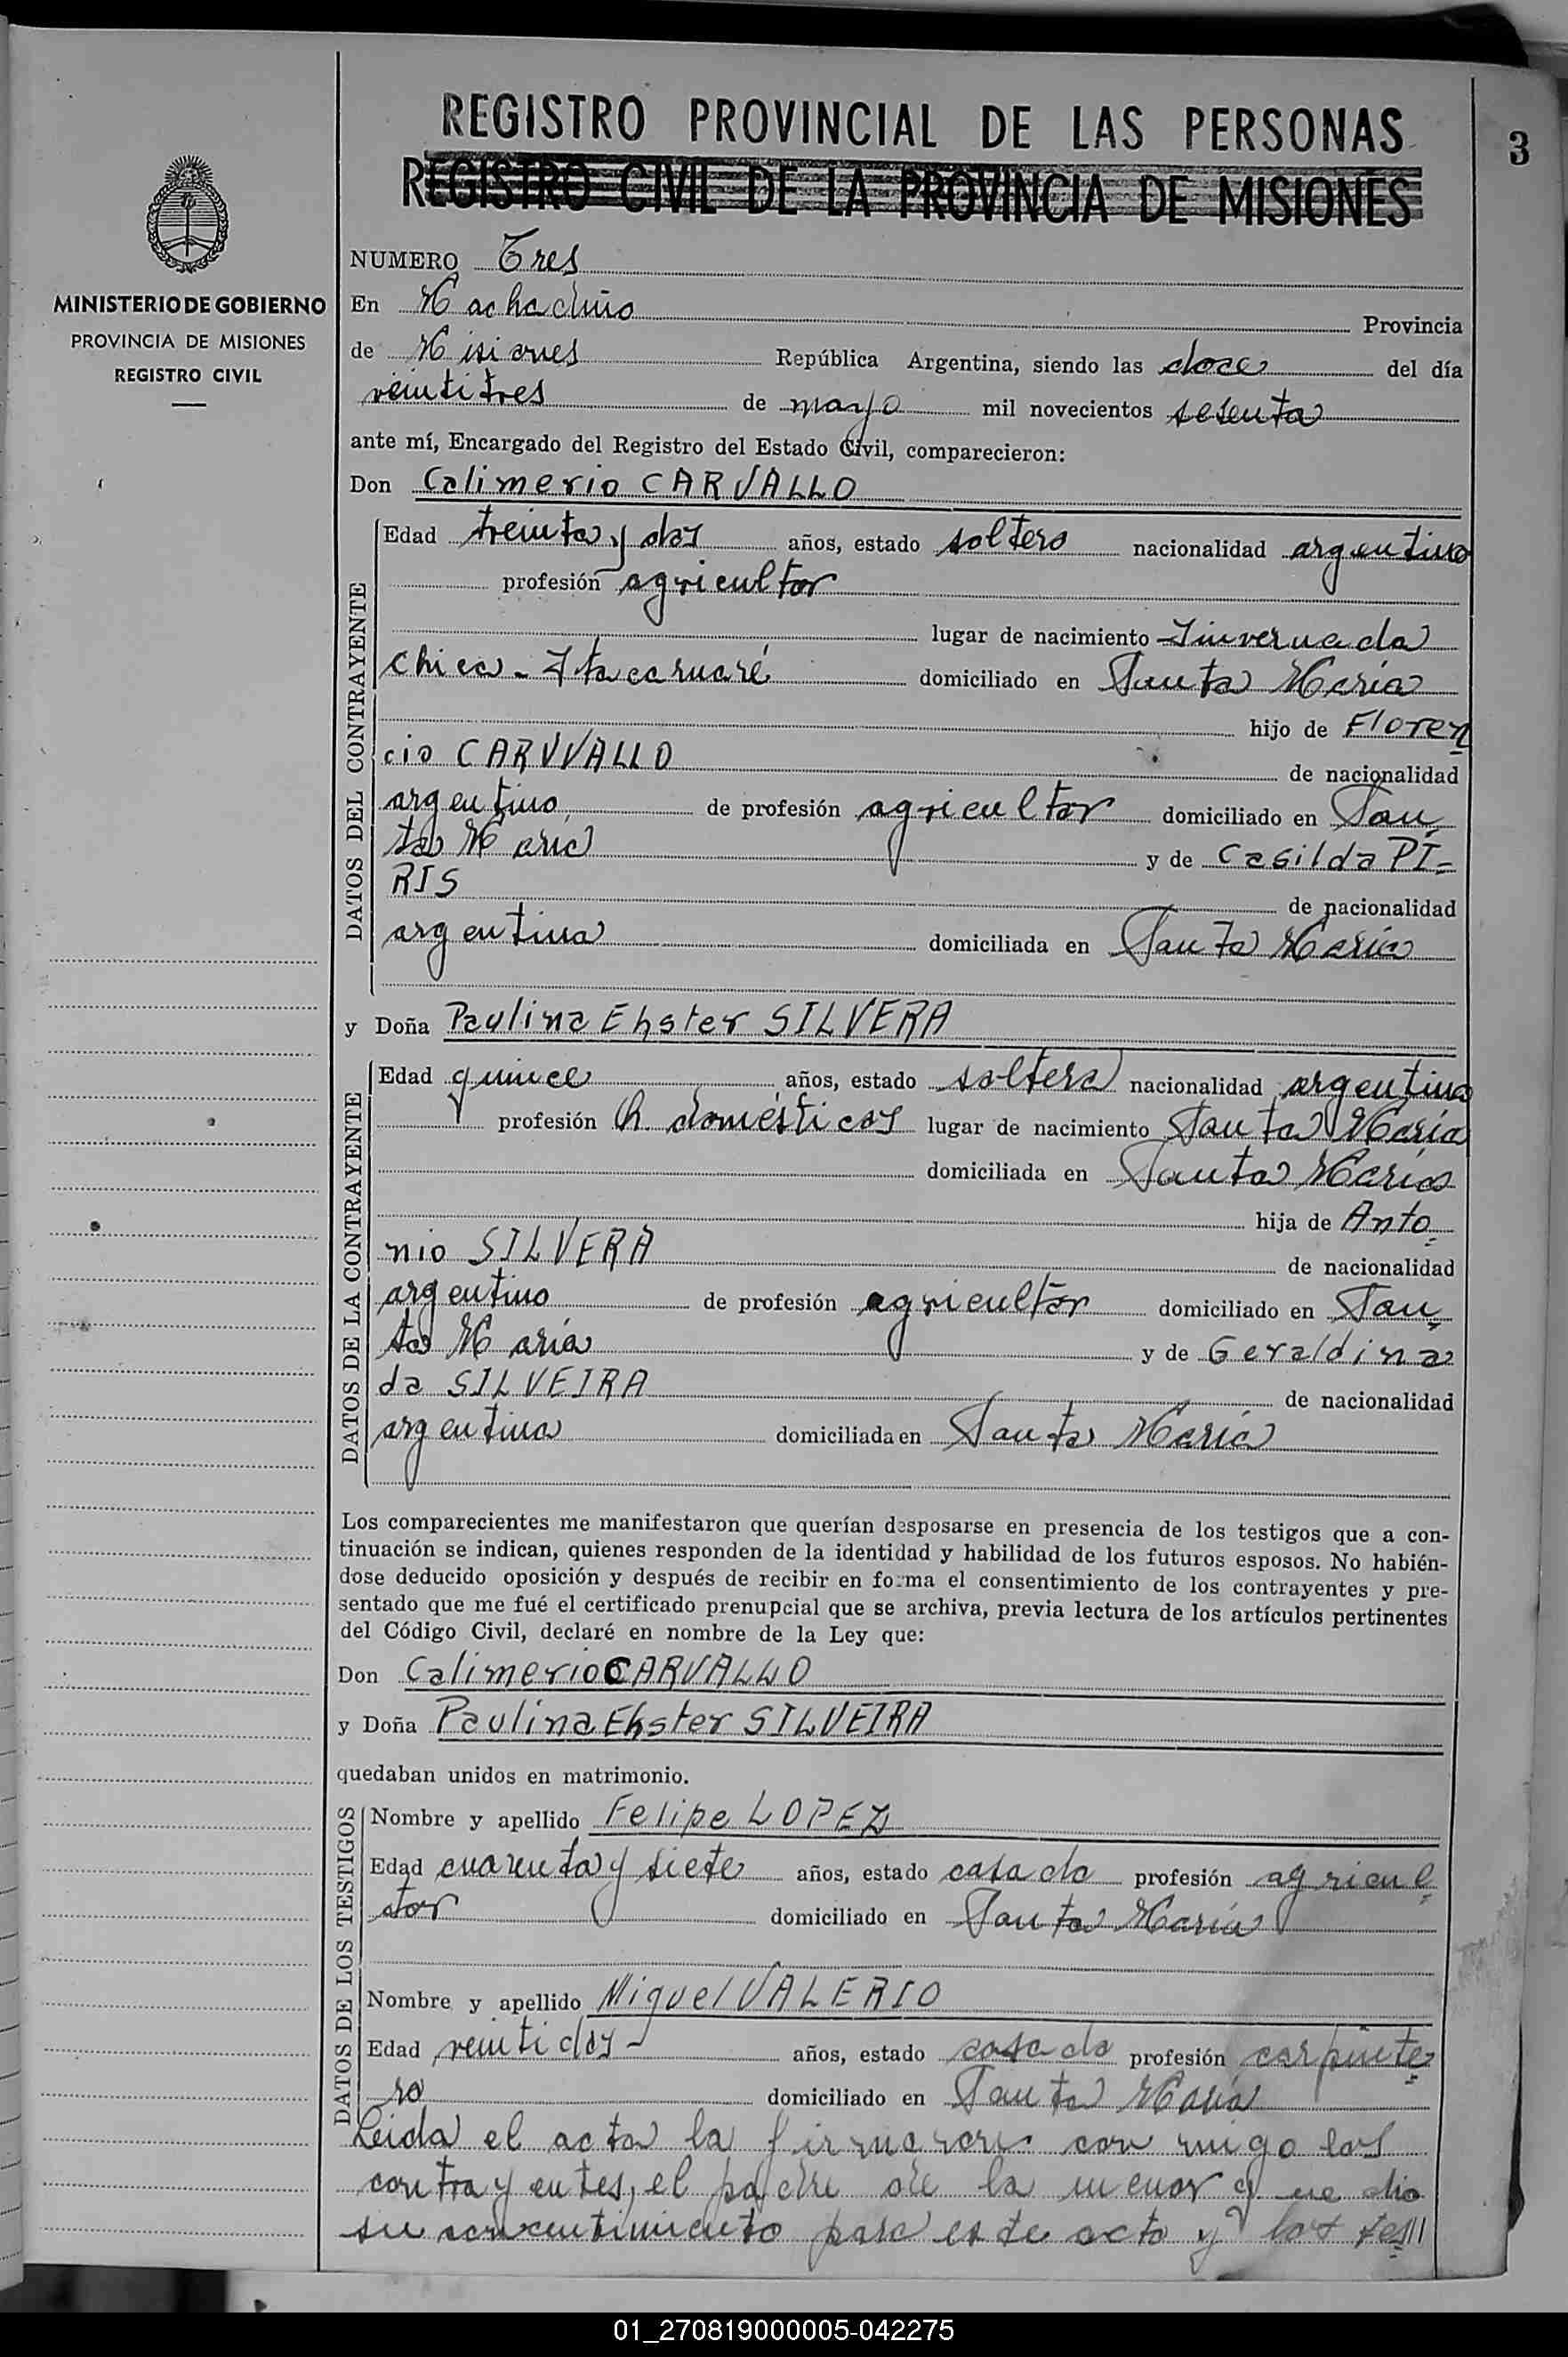 REGISTRO PROVINCIAL DE LAS PERSONAS
3
REGISTRO CIVIL DE LA PROVINCIA DE MISIONES
MINISTERIO DE GOBIERNO
PROVINCIA DE MISIONES
REGISTRO CIVIL
NUMERO Tres
En Machadiño Provincia
de Misiones República Argentina, siendo las doce del día
veintitres de mayo mil novecientos sesenta
ante mí, Encargado del Registro del Estado Civil, comparecieron:
Don Calimerio CARVALLO
DATOS DEL CONTRAYENTE
Edad treinta y dos años, estado soltero nacionalidad argentino
profesión agricultor
lugar de nacimiento Invernada
chica - Itacaruaré domiciliado en Santa María
hijo de Floren
cio CARVVALLO de nacionalidad
argentino de profesión agricultor domiciliado en San
ta María y de Casilda PI=
RIS de nacionalidad
argentina domiciliada en Santa María
y Doña Paulina Ehster SILVERA
DATOS DE LA CONTRAYENTE
Edad quince años, estado soltera nacionalidad argentina
profesión Q. domésticos lugar de nacimiento Santa María
domiciliada en Santa María
hija de Anto
nio SILVERA de nacionalidad
argentino de profesión agricultor domiciliado en San
ta María y de Geraldina
da SILVEIRA de nacionalidad
argentina domiciliada en Santa María
Los comparecientes me manifestaron que querían desposarse en presencia de los testigos que a con-
tinuación se indican, quienes responden de la identidad y habilidad de los futuros esposos. No habién-
dose deducido oposición y después de recibir en forma el consentimiento de los contrayentes y pre-
sentado que me fué el certificado prenupcial que se archiva, previa lectura de los artículos pertinentes
del Código Civil, declaré en nombre de la Ley que:
Don Calimerio CARVALLO
y Doña Paulina Ehster SILVEIRA
quedaban unidos en matrimonio.
DATOS DE LOS TESTIGOS
Nombre y apellido Felipe LOPEZ
Edad cuarenta y siete años, estado casado profesión agricul
tor domiciliado en Santa María
Nombre y apellido Miguel VALERIO
Edad veintidos - años, estado casado profesión carpinte
ro domiciliado en Santa María
Leida el acta la firmaron con migo los
contrayentes, el padre de la menor que dio
su consentimiento para este acto y los tes///
01_270819000005-042275